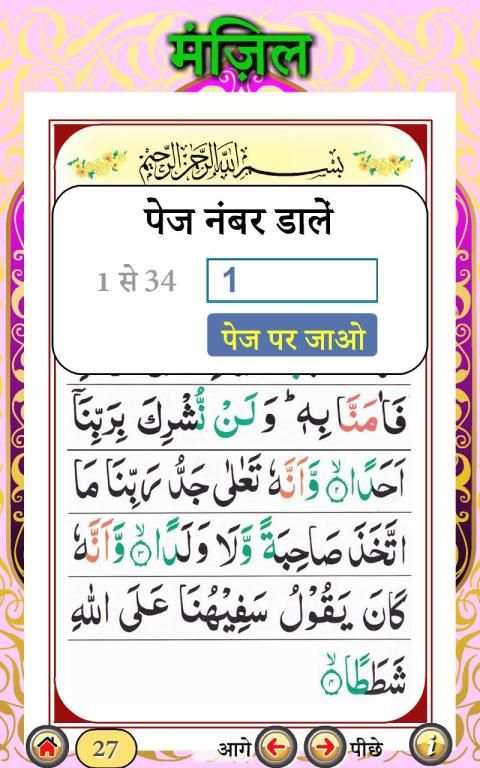 मंज़िल
بِسْمِ اللهِ الرَّحْمٰنِ الرَّحِيْمِ
पेज नंबर डालें
1 से 34
1
पेज पर जाओ
فَاٰمَنَّا بِهٖ ؕ وَ لَنْ نُّشْرِكَ بِرَبِّنَاۤ
اَحَدًا ۙ﴿۲﴾ وَّ اَنَّهٗ تَعٰلٰى جَدُّ رَبِّنَا مَا
اتَّخَذَ صَاحِبَةً وَّلَا وَلَدًا ۙ﴿۳﴾ وَّ اَنَّهٗ
كَانَ يَقُوْلُ سَفِيْهُنَا عَلَى اللهِ
شَطَطًا ۙ﴿۴﴾
27
आगे
पीछे
i